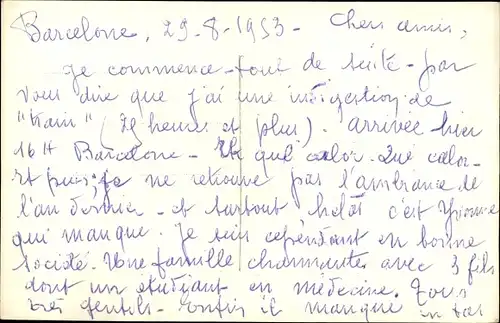 Barcelone, 29-8-1953- Chers amis,
Je commence tout de suite - par
vous dire que j'ai une indigestion de
"train" (29 heures et plus). Arrivée hier
16H Barcelone - qué calor. Qué calor-
et puis, je ne retrouve pas l'ambiance de
l'an dernier - et surtout hélas c'est Yvonne
qui manque. Je suis cependant en bonne
société. Une famille charmante avec 3 fils
dont un étudiant en médecine. Tous
très gentils - enfin il manque